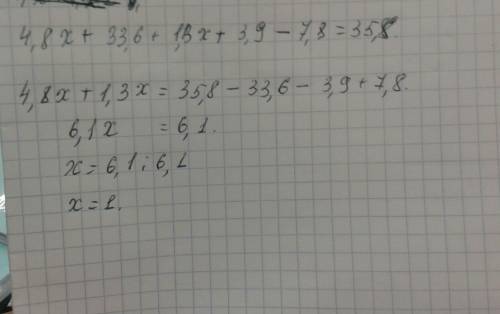 4,8x + 33,6 + 1,3x + 3,9 - 7,8 = 35,8.
4,8x + 1,3x = 35,8 - 33,6 - 3,9 + 7,8.
6,1x = 6,1.
x = 6,1 : 6,1
x = 1.